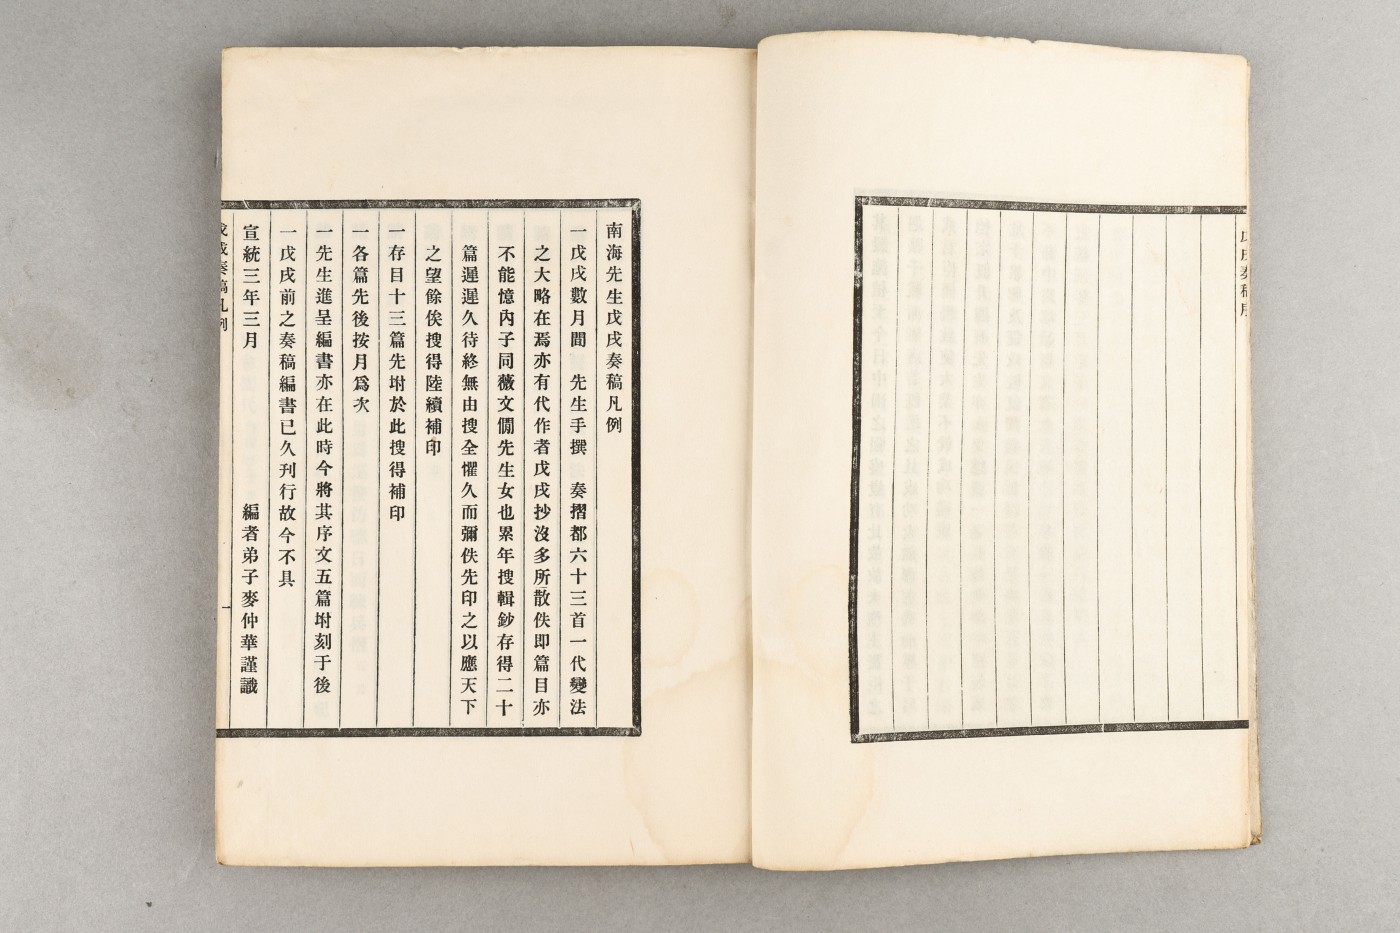 戊戌奏稿序
南海先生戊戌奏稿凡例
一戊戌數月間　先生手撰　奏摺都六十三首一代變法
之大略在焉亦有代作者戊戌抄沒多所散佚即篇目亦
不能憶內子同薇文僩先生女也累年搜輯鈔存得二十
篇遲遲久待終無由搜全懼久而彌佚先印之以應天下
之望餘俟搜得陸續補印
一存目十三篇先坿於此搜得補印
一各篇先後按月爲次
一先生進呈編書亦在此時今將其序文五篇坿刻于後
一戊戌前之奏稿編書已久刋行故今不具
宣統三年三月　編者弟子麥仲華謹識
戊戌奏稿凡例　一